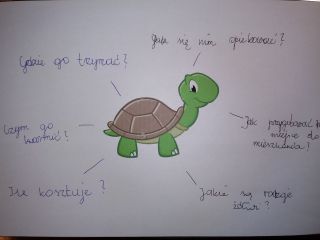 Gdzie go trzymać?
Jak się nim opiekować?
Czym go
karmić?
Jak przygotować
miejsce do
mieszkania?
Ile kosztuje?
Jakie są rodzaje
żółwi?